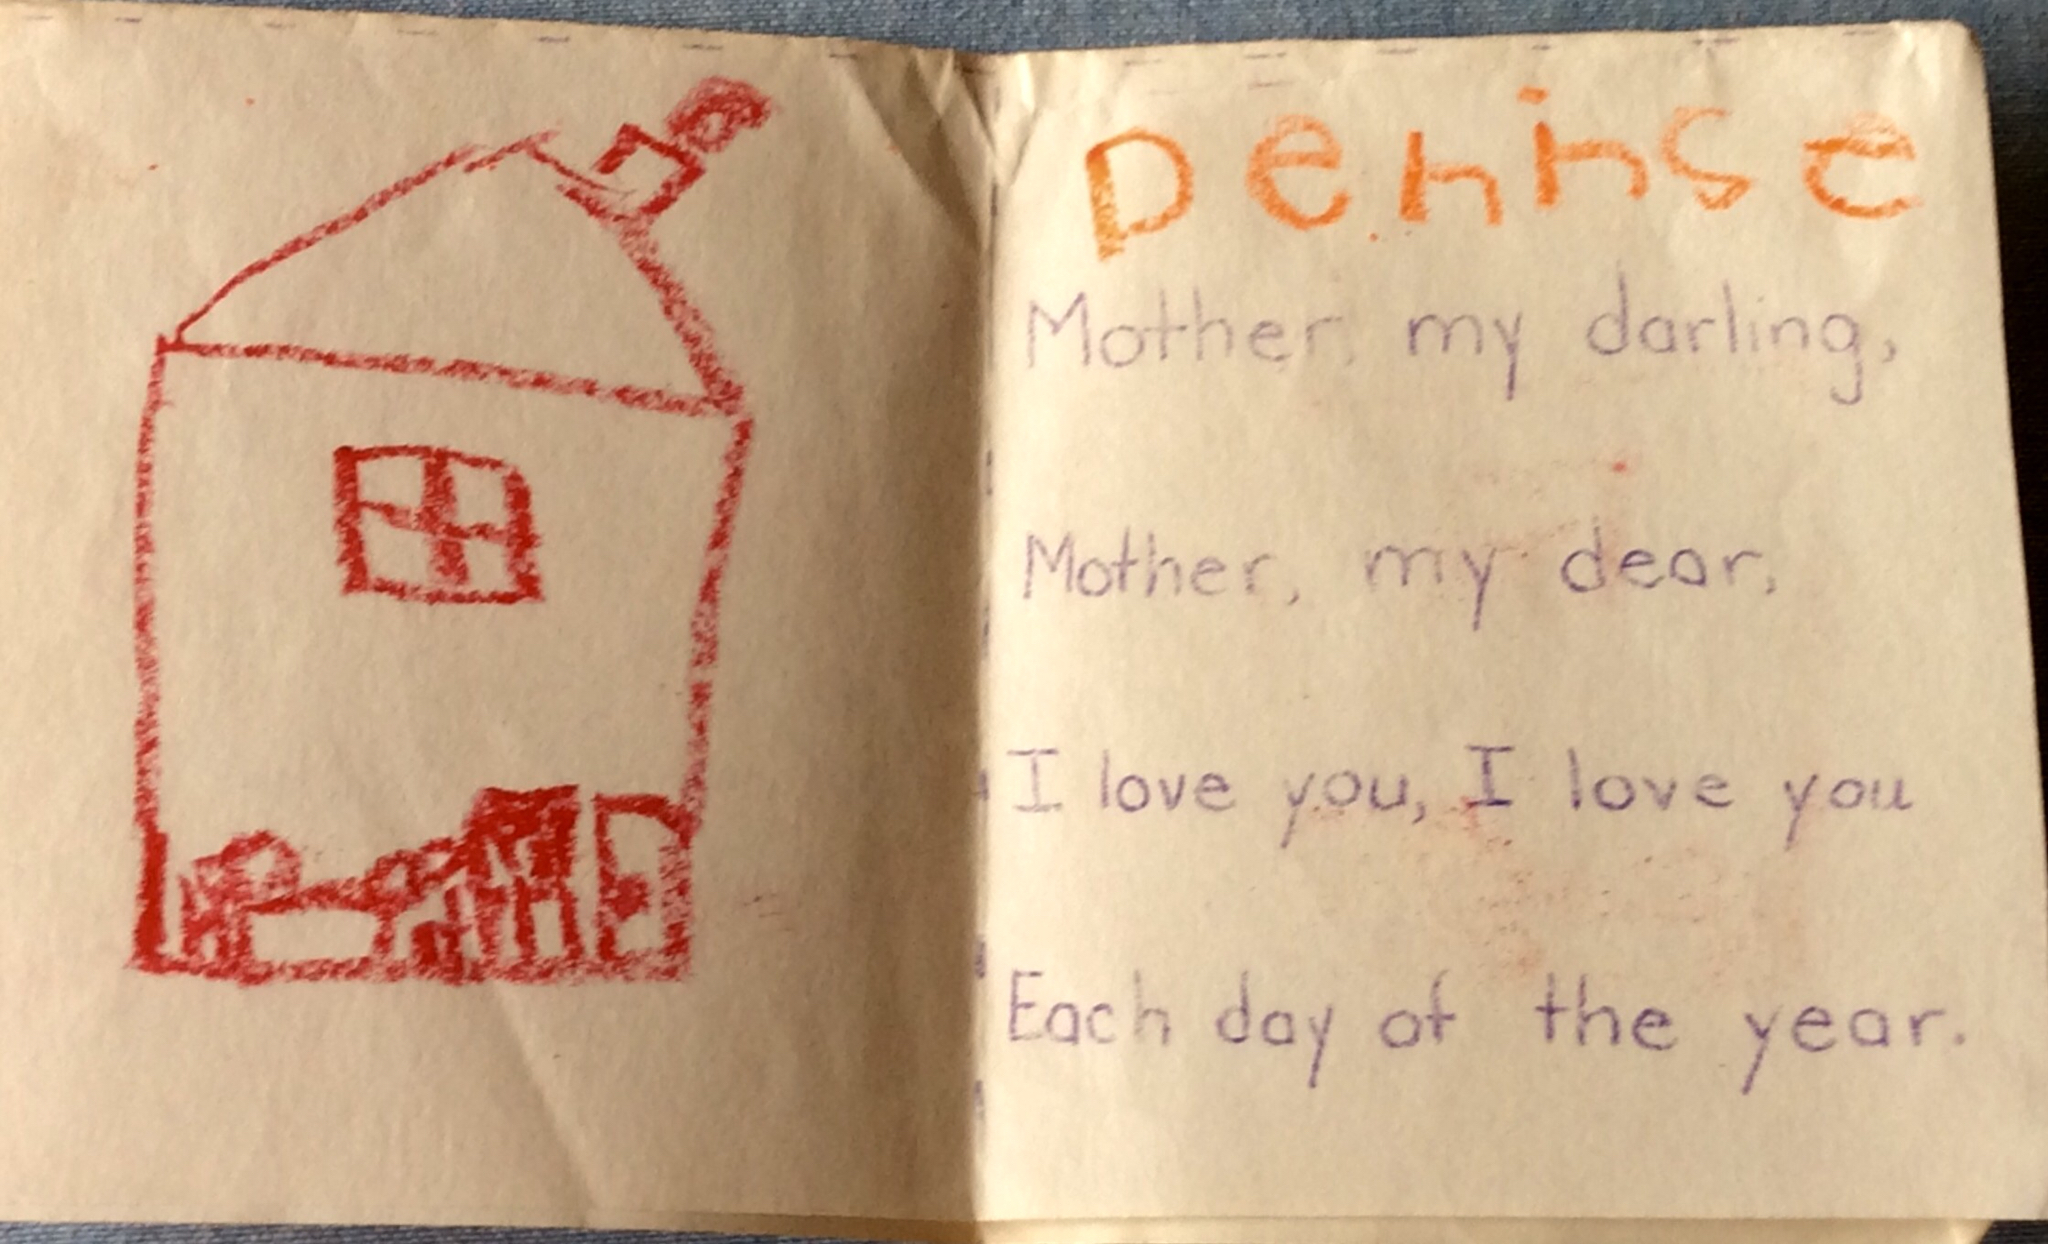 Denise
Mother, my darling,
Mother, my dear,
I love you, I love you
Each day of the year.